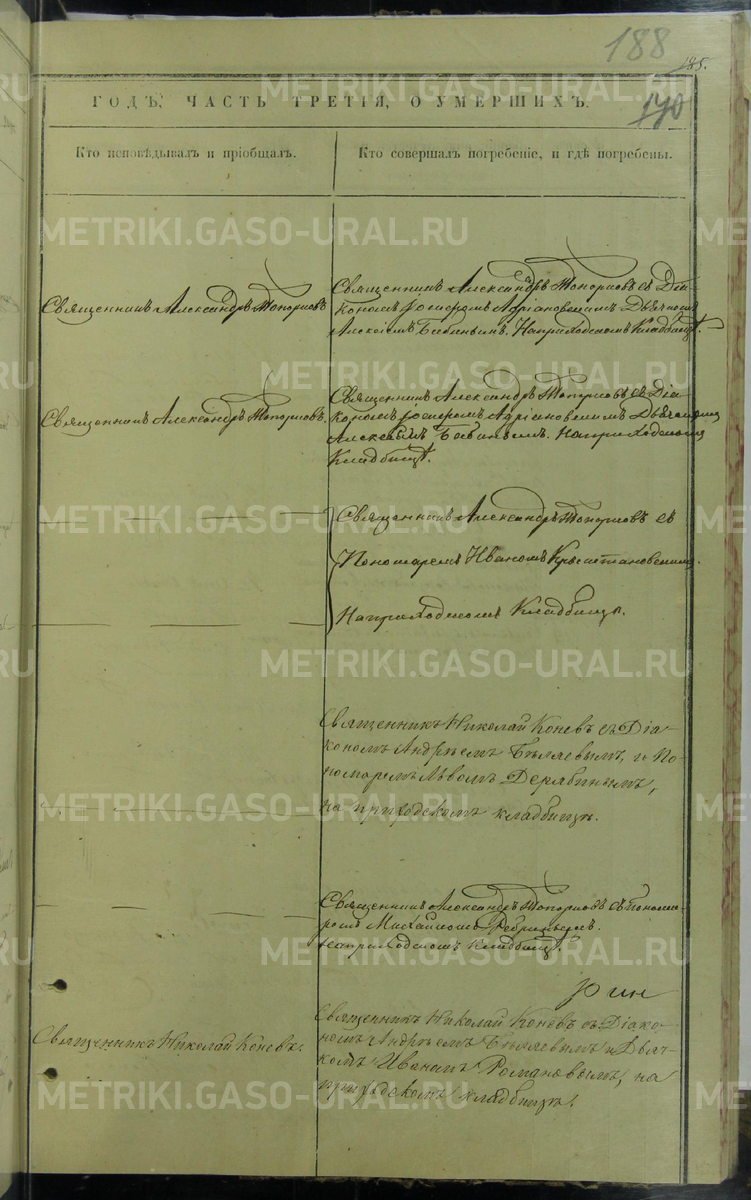 188
185.
190
ГОДЪ, ЧАСТЬ ТРЕТІЯ, О УМЕРШИХЪ.
Кто исповѣдывалъ и пріобщалъ.
Кто совершалъ погребеніе, и гдѣ погребены.
Священникъ Александръ Топорковъ
Священникъ Александръ Топорковъ съ Діа-
кономъ Іосифомъ Адріановскимъ Дьячкомъ
Алексіемъ Бабинымъ. На приходскомъ Кладбищѣ.
Священникъ Александръ Топорковъ.
Священникъ Александръ Топорковъ съ Діа-
кономъ Іосифомъ Адріановскимъ Дьячкомъ
Алексіемъ Бабинымъ. На приходскомъ
Кладбищѣ.
Священникъ Александръ Топорковъ съ
Пономаремъ Иваномъ
На приходскомъ Кладбищѣ.
Священникъ Николай Коневъ съ Діа-
кономъ Андреемъ Бѣляевымъ, и По-
номаремъ Львомъ Дерябинымъ,
на приходскомъ кладбищѣ.
Священникъ Александръ Топорковъ съ Понома-
ремъ Михаиломъ
на приходскомъ кладбищѣ.
Священникъ Николай Коневъ.
Священникъ Николай Коневъ съ Діако-
номъ Андреемъ Бѣляевымъ и Дьяч-
комъ Иваномъ Романовымъ, на
приходскомъ кладбищѣ.
METRIKI.GASO-URAL.RU